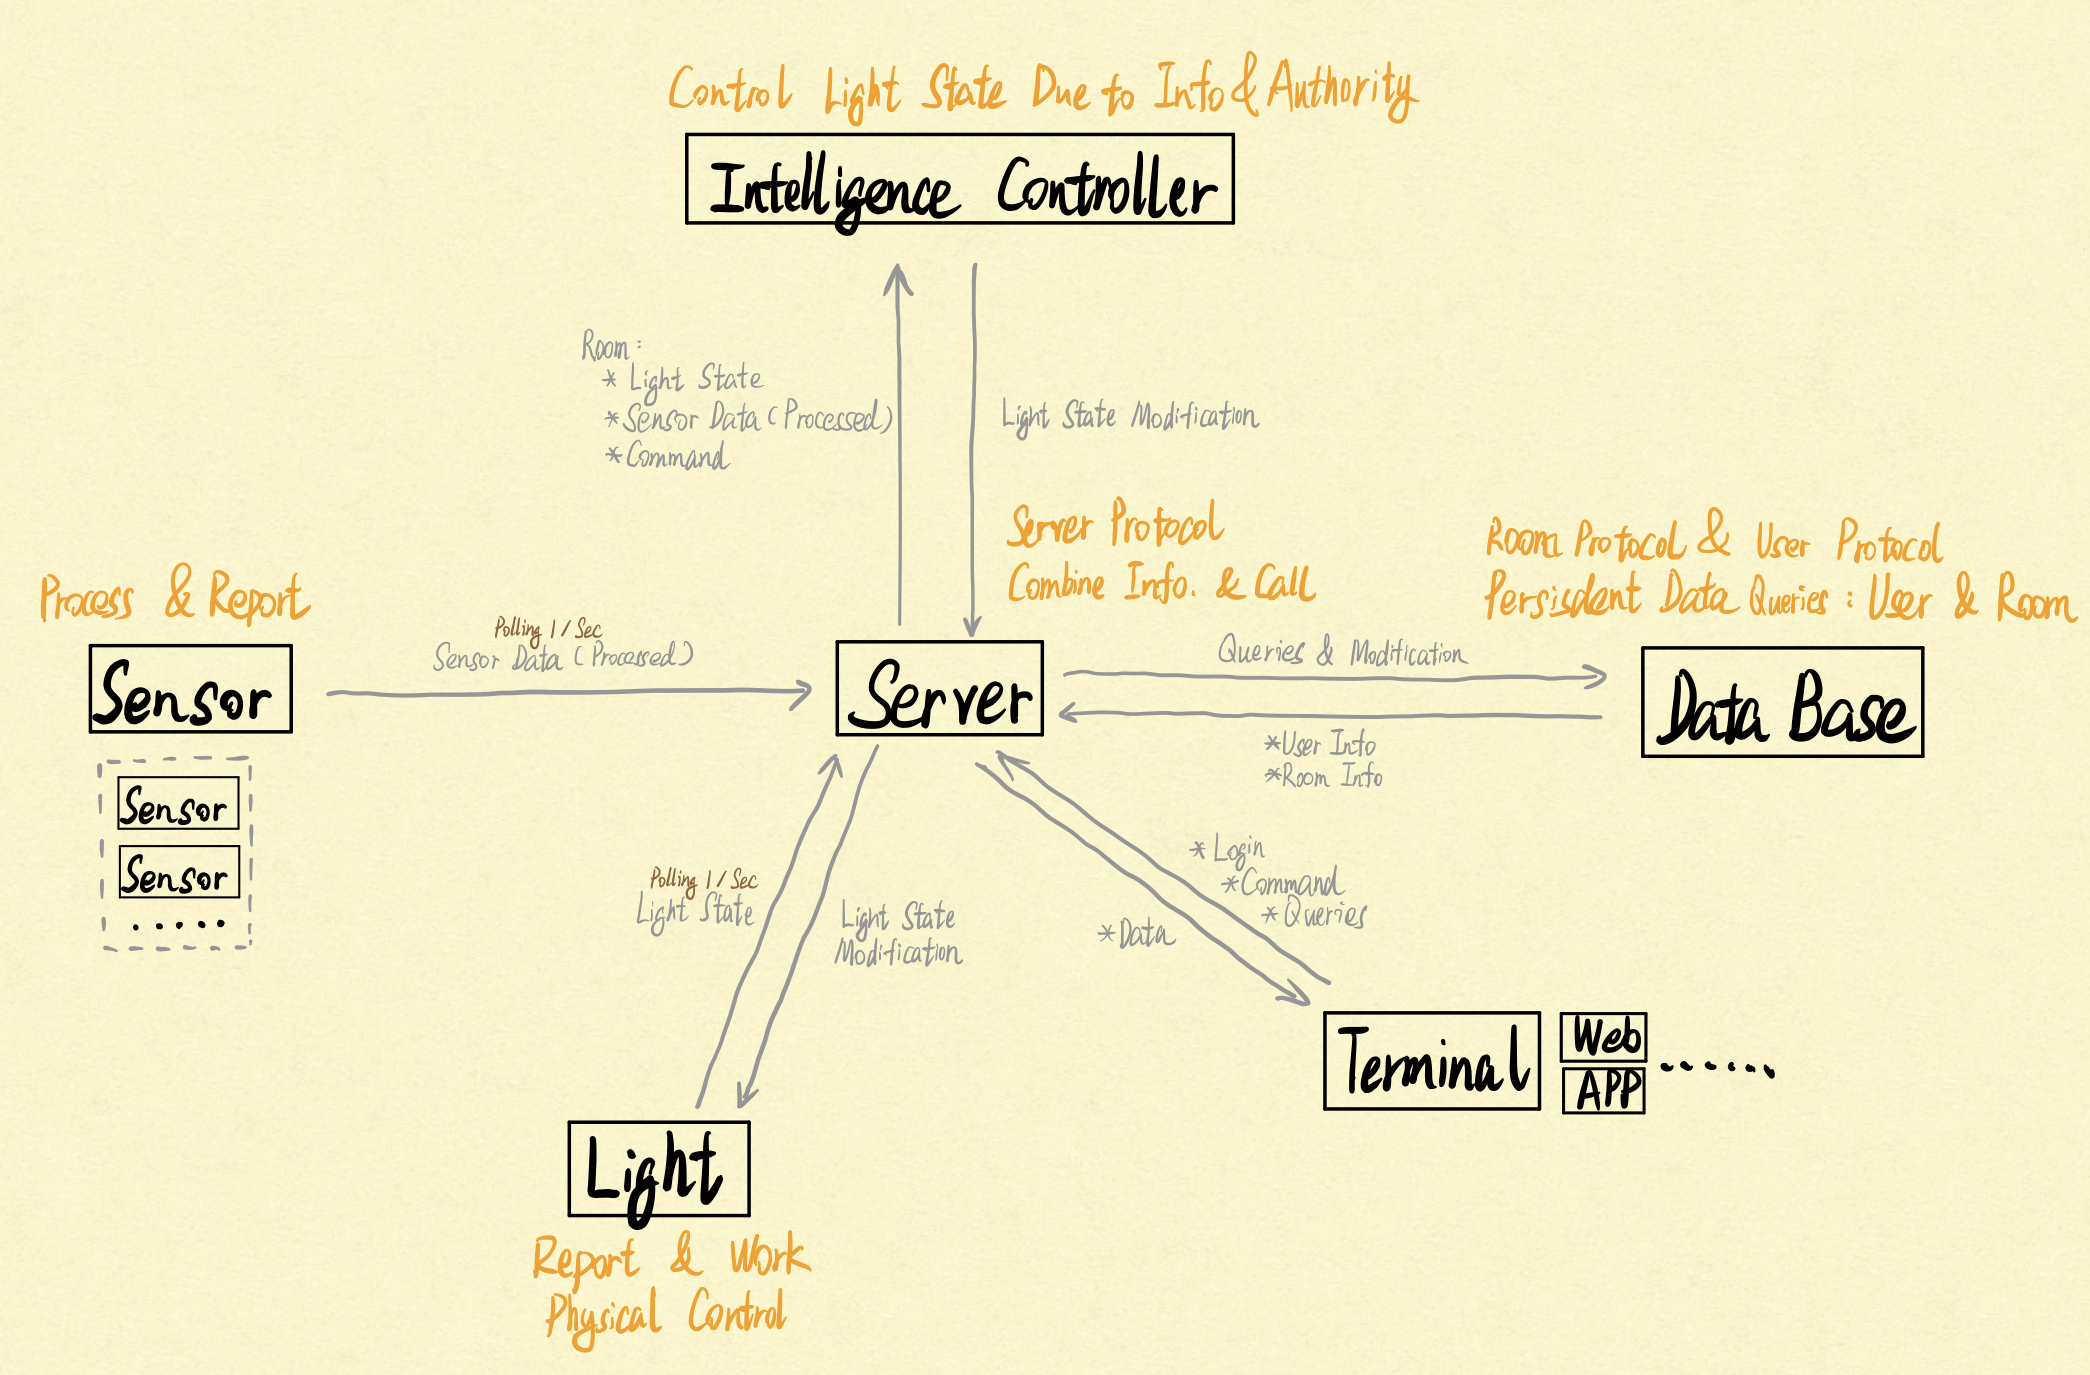 Control Light State Due to Info & Authority
Intelligence Controller
Room:
* Light State
* Sensor Data (Processed)
* Command
Light State Modification
Server Protocol
Combine Info. & Call
Room Protocol & User Protocol
Persisdent Data Queries: User & Room
Process & Report
Polling 1 / Sec
Sensor Data (Processed)
Sensor
Server
Queries & Modification
Data Base
* User Info
* Room Info
Sensor
Sensor
.....
Polling 1 / Sec
Light State
Light State
Modification
* Login
* Command
* Queries
* Data
Terminal
Web
APP
......
Light
Report & Work
Physical Control